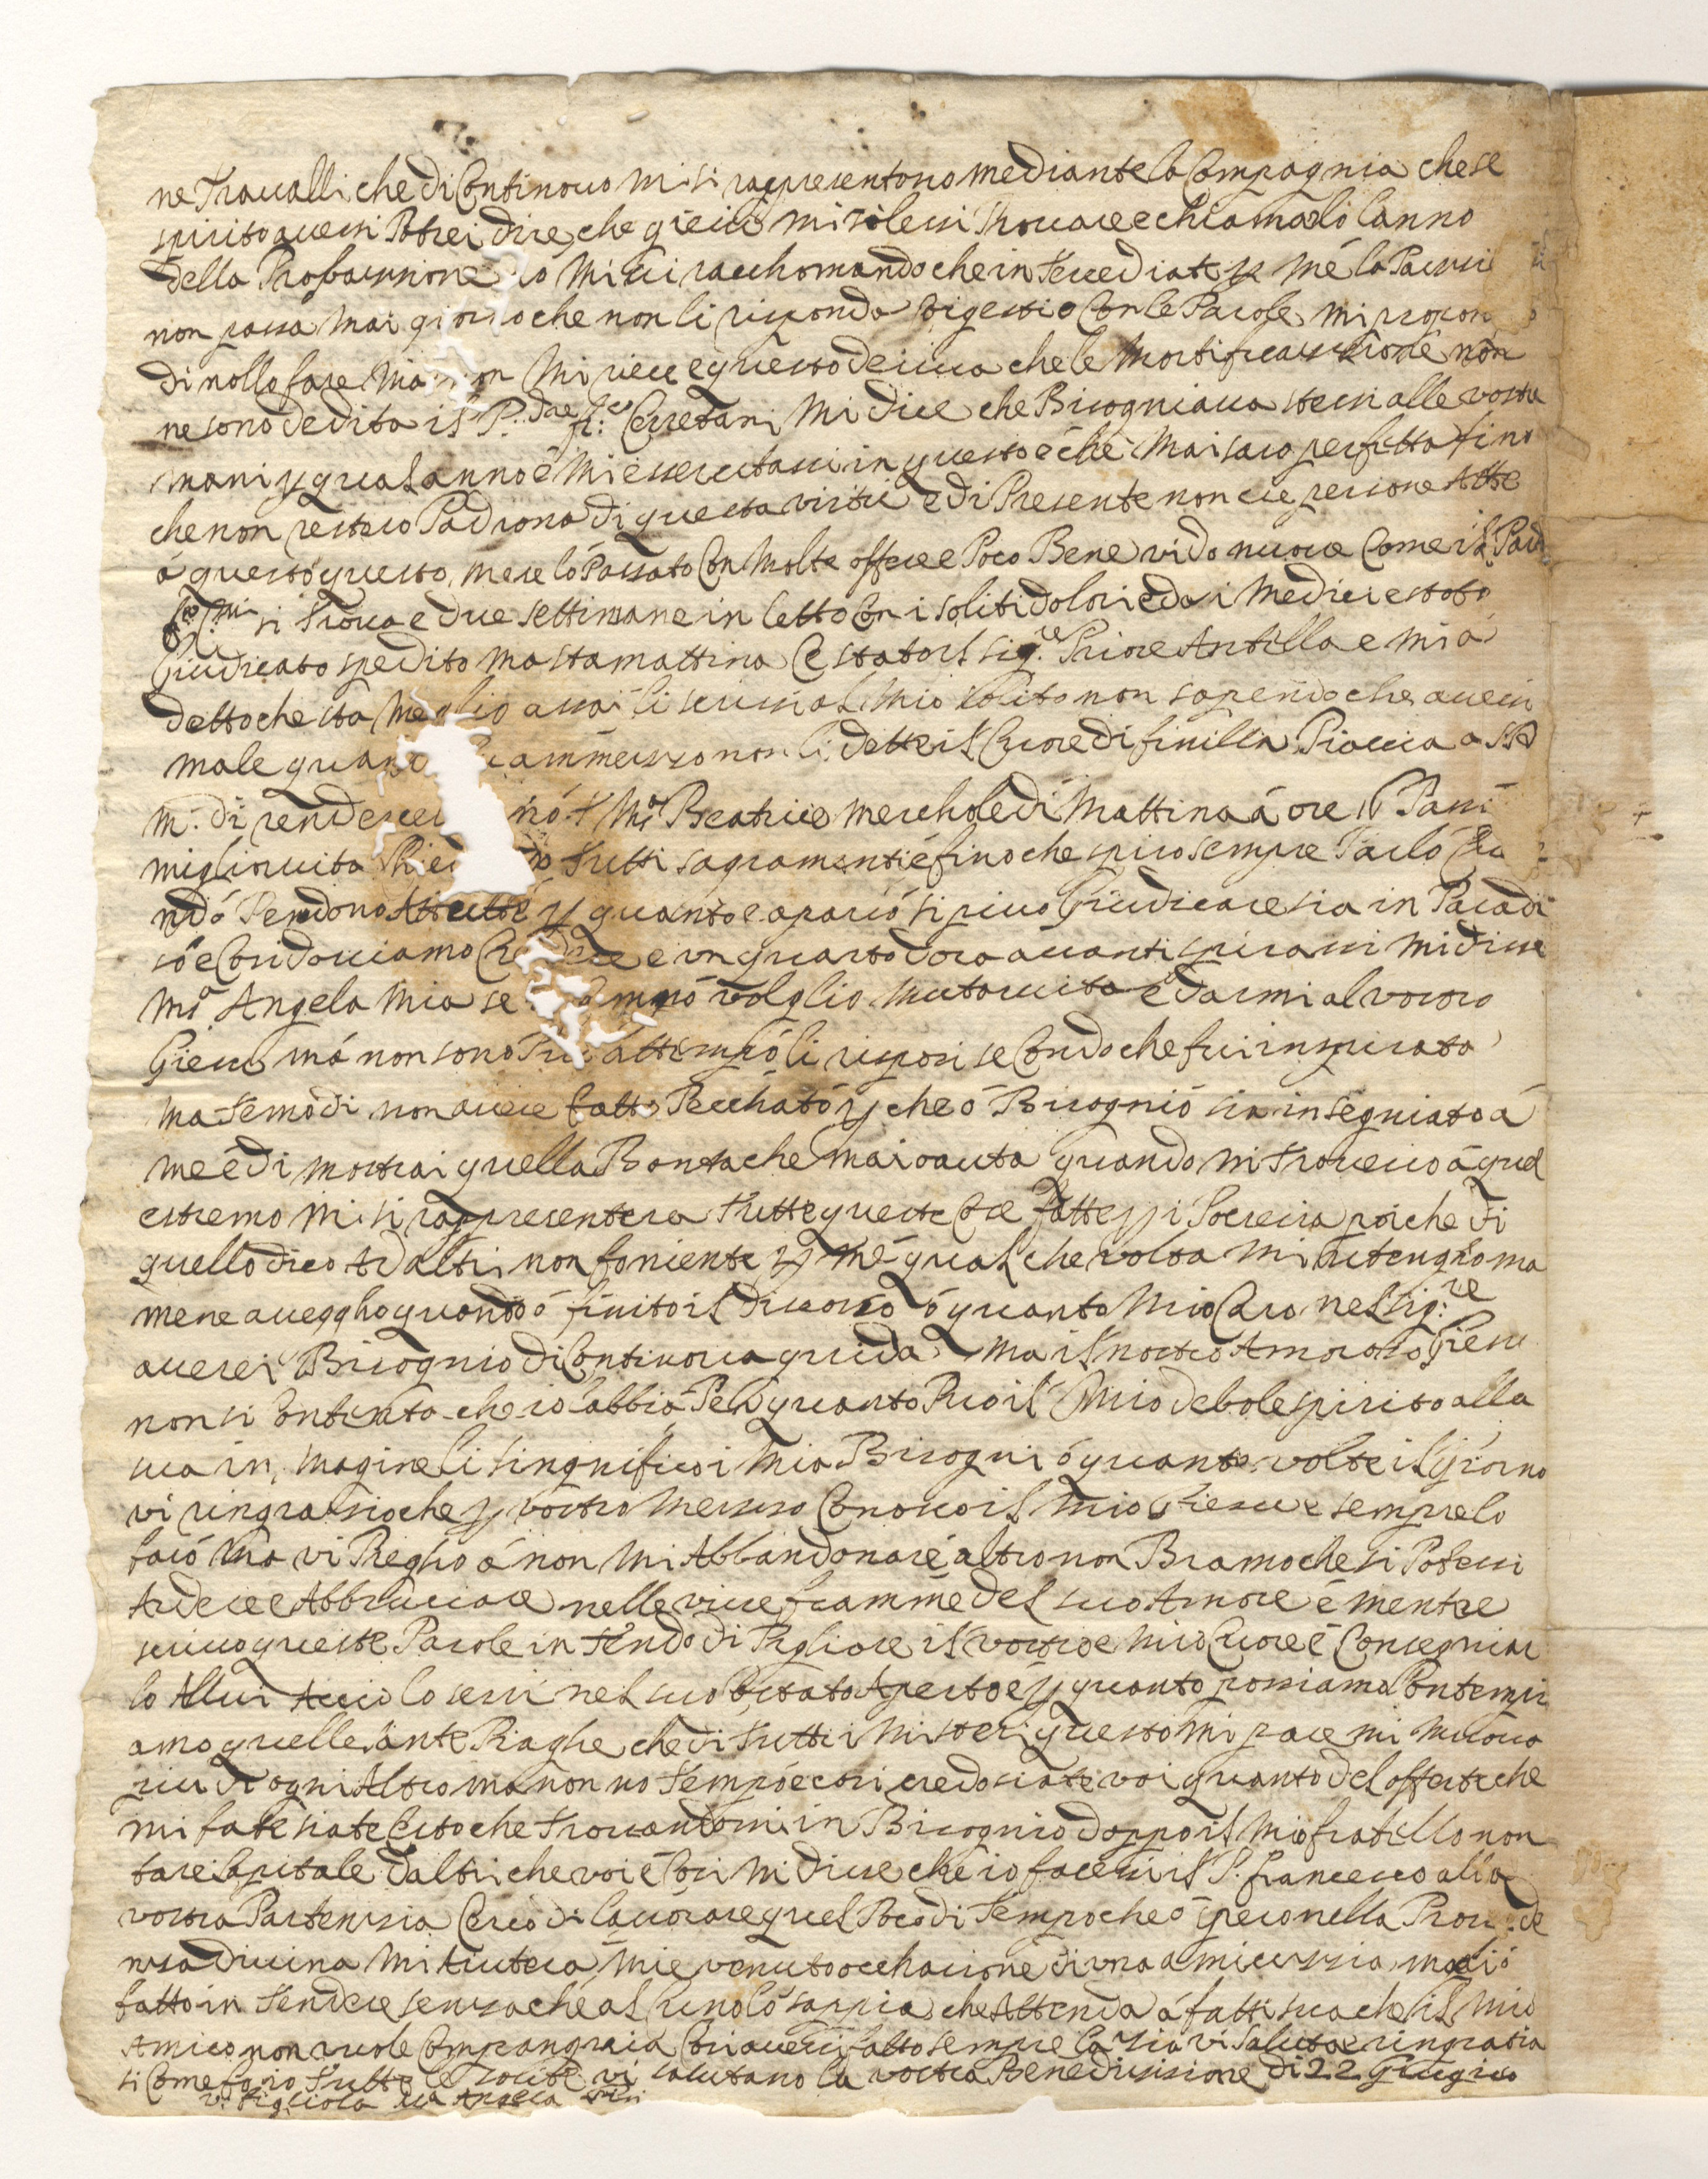 ne Travalli che di Continovo mi si rappresentono mediante la Compagnia che se
spirito avessi Potrei dire che giesu mi volessi Trovare e chiamarlo lanno
della Probazzione io mi vi racchomando che in Tercediate p me la Pazzi
non passa mai giorno che non li risponda o i gesti o Con le Parole mi propon
di nollo fare ma non mi riesce e questo deriva che le mortificazzione non
ne sono dedita il P. dre fr: Cerretani mi dice che Bisogniava stessi alle vostre
mani p qual anno e mi essercitassi in questo e che mai saro perfetta fino
che non restero Padrona di questa virtu e di Presente non cie persone Atte
a questo questo mese lo Passato Con molte offese e Poco Bene vi do nuove Come il Pad
si Trova e due settimane in letto Con i soliti dolori e da i Medici e stato
Giudicato spedito ma stamattina e stato il sig.re Priore Antella e mi a
detto che sta meglio assai li scrissi al mio solito non sapendo che avessi
male quan ammezzo non li dette il Cuore di finilla Piaccia a S D
M: di rendere ma Beatrice mercholedi mattina a ore Pass
miglior vita Chie Tutti sagramenti e fino che spiro sempre Parlo
ndo p quanto e aparso si puo Giudicare sia in Paradi
so e Cosi dovviamo Credere e un quarto dora avanti spirassi mi disse
ma Angela mia se Campo volglio mutar vita e darmi al vostro
Giesu ma non sono Piu attempo li risposi se Condo che fui inspirata
ma Temo di non avere fatto Pecchato p che o Bisognio sia insegniato a
me e di mostrai quella Bonta che mai o auta quando mi Trovero a quel
estremo mi si rappresentera Tutte queste Cose fatte p i Pocresia poi che di
quello dico ad altri non fo niente p me qual che volta mi ritengho ma
mene avegho quando o finito il discorso o quanto mio Caro nel sig:re
averei Bisognio di Continova guida ma il nostro Amoroso Giesu
non si Contenta che io labbia Pero quanto Puo il mio debole spirito alla
sua in, magine li singnifico i mia Bisogni o quante volte il giorno
vi ringrazio che p vostro mezzo Conosco il mio Giesu e sempre lo
faro ma vi Pregho a non mi Abbandonare altro non Bramo che si Potessi
Ardere e Abbruciare nelle vive fiamme del suo Amore e mentre
scrivo queste Parole in Tendo di Pigliare il vostro e mio Cuore e Consegniar
lo Allui Accio lo serri nel suo Costato Aperto e p quanto possiamo Contempi
amo quelle sante Piaghe che di Tutti i misteri questo mi pare mi muova
piu di ogni Altro ma non no Tempo e cosi credo siate voi quanto del offerte che
mi fate siate Certo che Trovandomi in Bisognio doppo il mio fratello non
farei Capitale daltri che voi e Cosi mi disse che io facessi il P. francesco alla
vostra Partenzia Cerco di lavorare quel Poco di Tempo che o spero nella Provide
nza divina mi Aiutera mie venuto occhasione di una amicizzia ma li o
fatto in Tendere senza che al Cuno lo sappia che Attenda a fatti sua che il mio
Amico non vuole Compangnia Cosi avessi fatto sempre la zia vi saluta e ringrazia
si Come fo io Tutte le solite vi salutano la vostra Benedizzione di 22 Giugnio
v: figliola